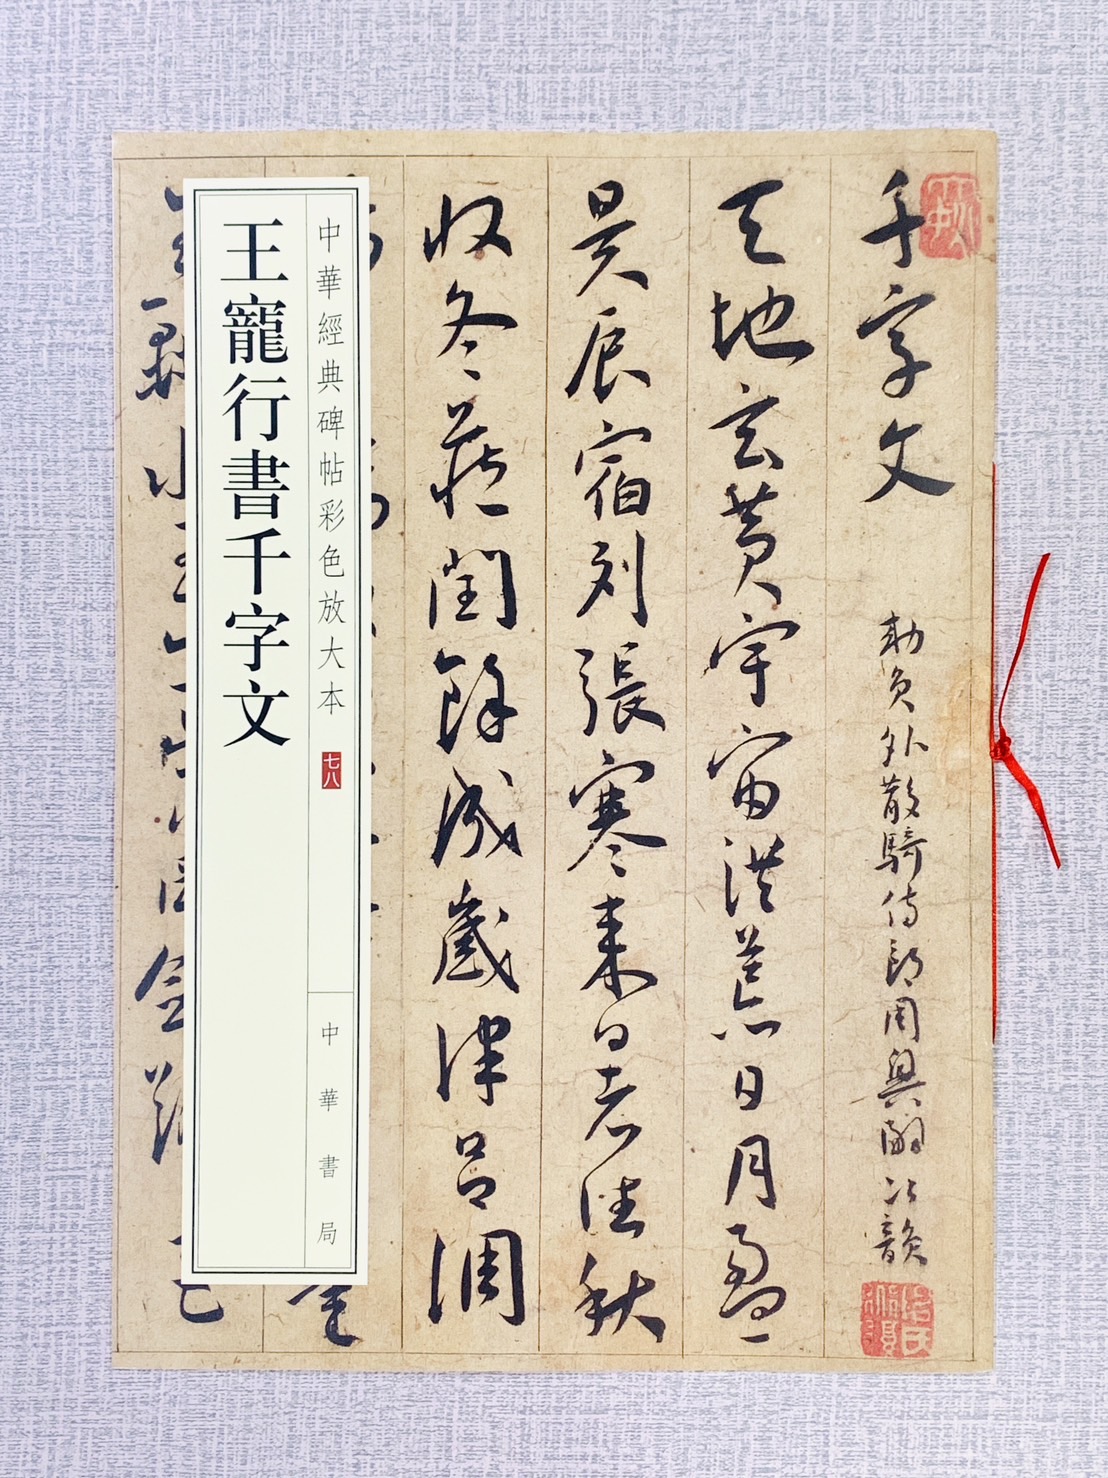 千字文
勑員外散騎侍郎周興嗣次韻
天地玄黃宇宙洪荒日月盈
昃辰宿列張寒來暑往秋
收冬藏閏餘成歲律呂調
中華經典碑帖彩色放大本
七八
中華書局
王寵行書千字文